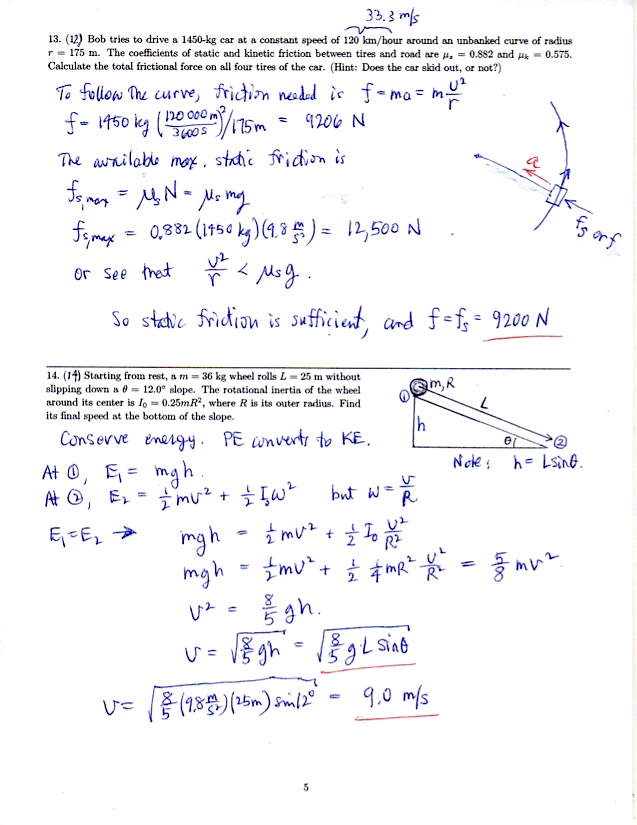 33.3 m/s
13. (12) Bob tries to drive a 1450-kg car at a constant speed of 120 km/hour around an unbanked curve of radius
r = 175 m. The coefficients of static and kinetic friction between tires and road are μs = 0.882 and μk = 0.575.
Calculate the total frictional force on all four tires of the car. (Hint: Does the car skid out, or not?)
To follow the curve, friction needed is f = ma = m v²/r
f = 1450 kg (120 000 m/3600 s)²/175m = 9206 N
The available max. static friction is
a
fs,max = μsN = μsmg
fs or f
fs,max = 0.882 (1450 kg)(9.8 m/s²) = 12,500 N
or see that v²/r < μsg.
So static friction is sufficient, and f = fs = 9200 N
14. (14) Starting from rest, a m = 36 kg wheel rolls L = 25 m without
slipping down a θ = 12.0° slope. The rotational inertia of the wheel
around its center is I₀ = 0.25mR², where R is its outer radius. Find
its final speed at the bottom of the slope.
m, R
①
L
h
θ
②
Conserve energy. PE converts to KE.
Note: h = L sinθ.
At ①, E₁ = mgh.
At ②, E₂ = ½mv² + ½I₀ω² but ω = v/R
E₁ = E₂ → mgh = ½mv² + ½ I₀ v²/R²
mgh = ½mv² + ½ ¼mR² v²/R² = 5/8 mv².
v² = 8/5 gh.
v = √(8/5 gh) = √(8/5 g·L sinθ)
v = √(8/5 (9.8 m/s²)(25m) sin12°) = 9.0 m/s
5